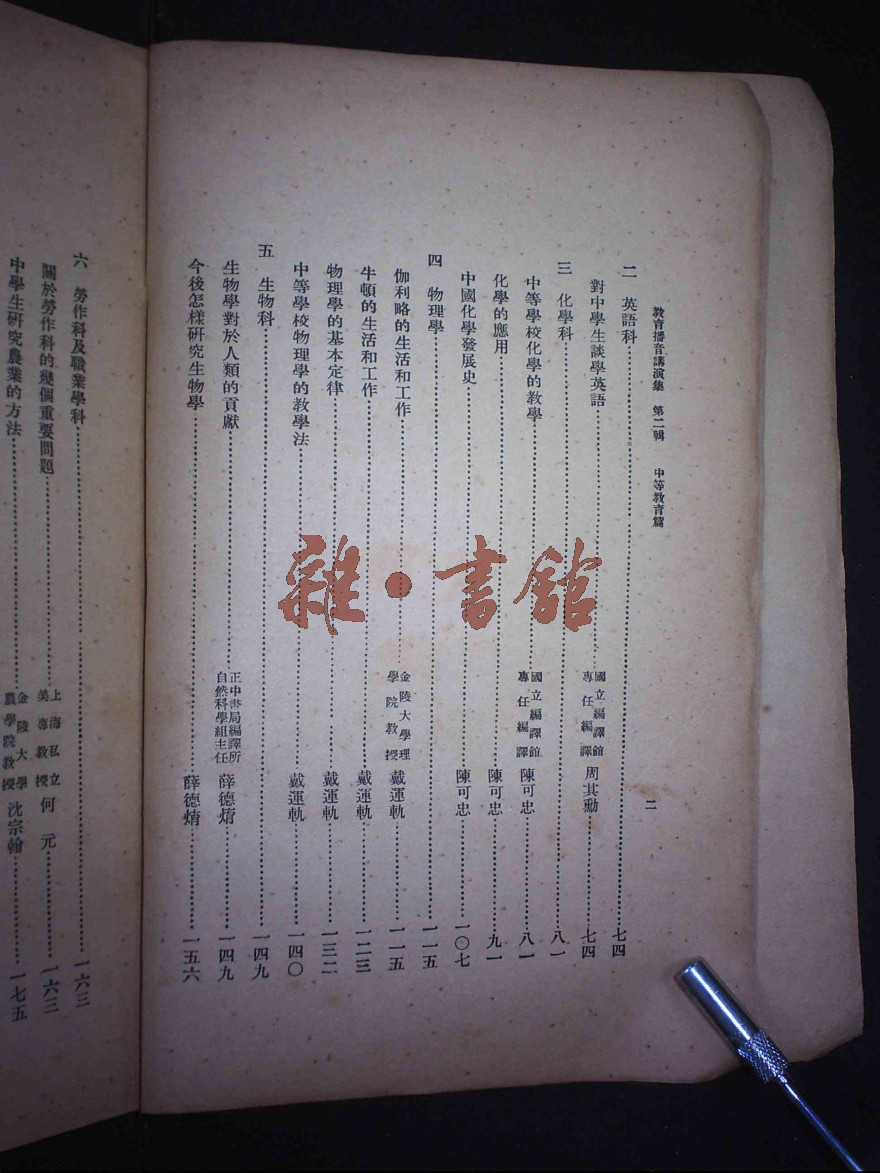 教育播音講演集　第二輯　中等教育篇　二
二　英語科……七四
對中學生談學英語……國立編譯館專任編譯　周其勳……七四
三　化學科……八一
中等學校化學的教學……國立編譯館專任編譯　陳可忠……八一
化學的應用……陳可忠……九一
中國化學發展史……陳可忠……一〇七
四　物理學……一一五
伽利略的生活和工作……金陵大學理學院教授　戴運軌……一一五
牛頓的生活和工作……戴運軌……一二三
物理學的基本定律……戴運軌……一三二
中等學校物理學的教學法……戴運軌……一四〇
五　生物科……一四九
生物學對於人類的貢獻……正中書局編譯所自然科學組主任　薛德焴……一四九
今後怎樣研究生物學……薛德焴……一五六
六　勞作科及職業學科……一六三
關於勞作科的幾個重要問題……上海私立美專教授　何元……一六三
中學生研究農業的方法……金陵大學農學院教授　沈宗翰……一七五
雜·書館